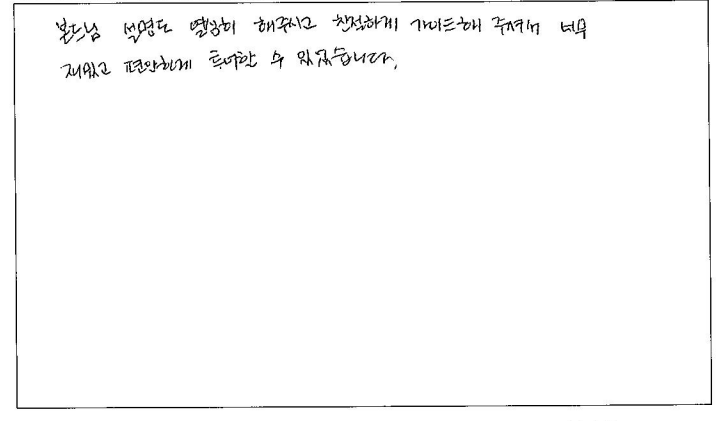 볼드님 설명도 열심히 해주시고 친절하게 가이드해 주셔서 너무
재밌고 편안하게 투어할 수 있었습니다.